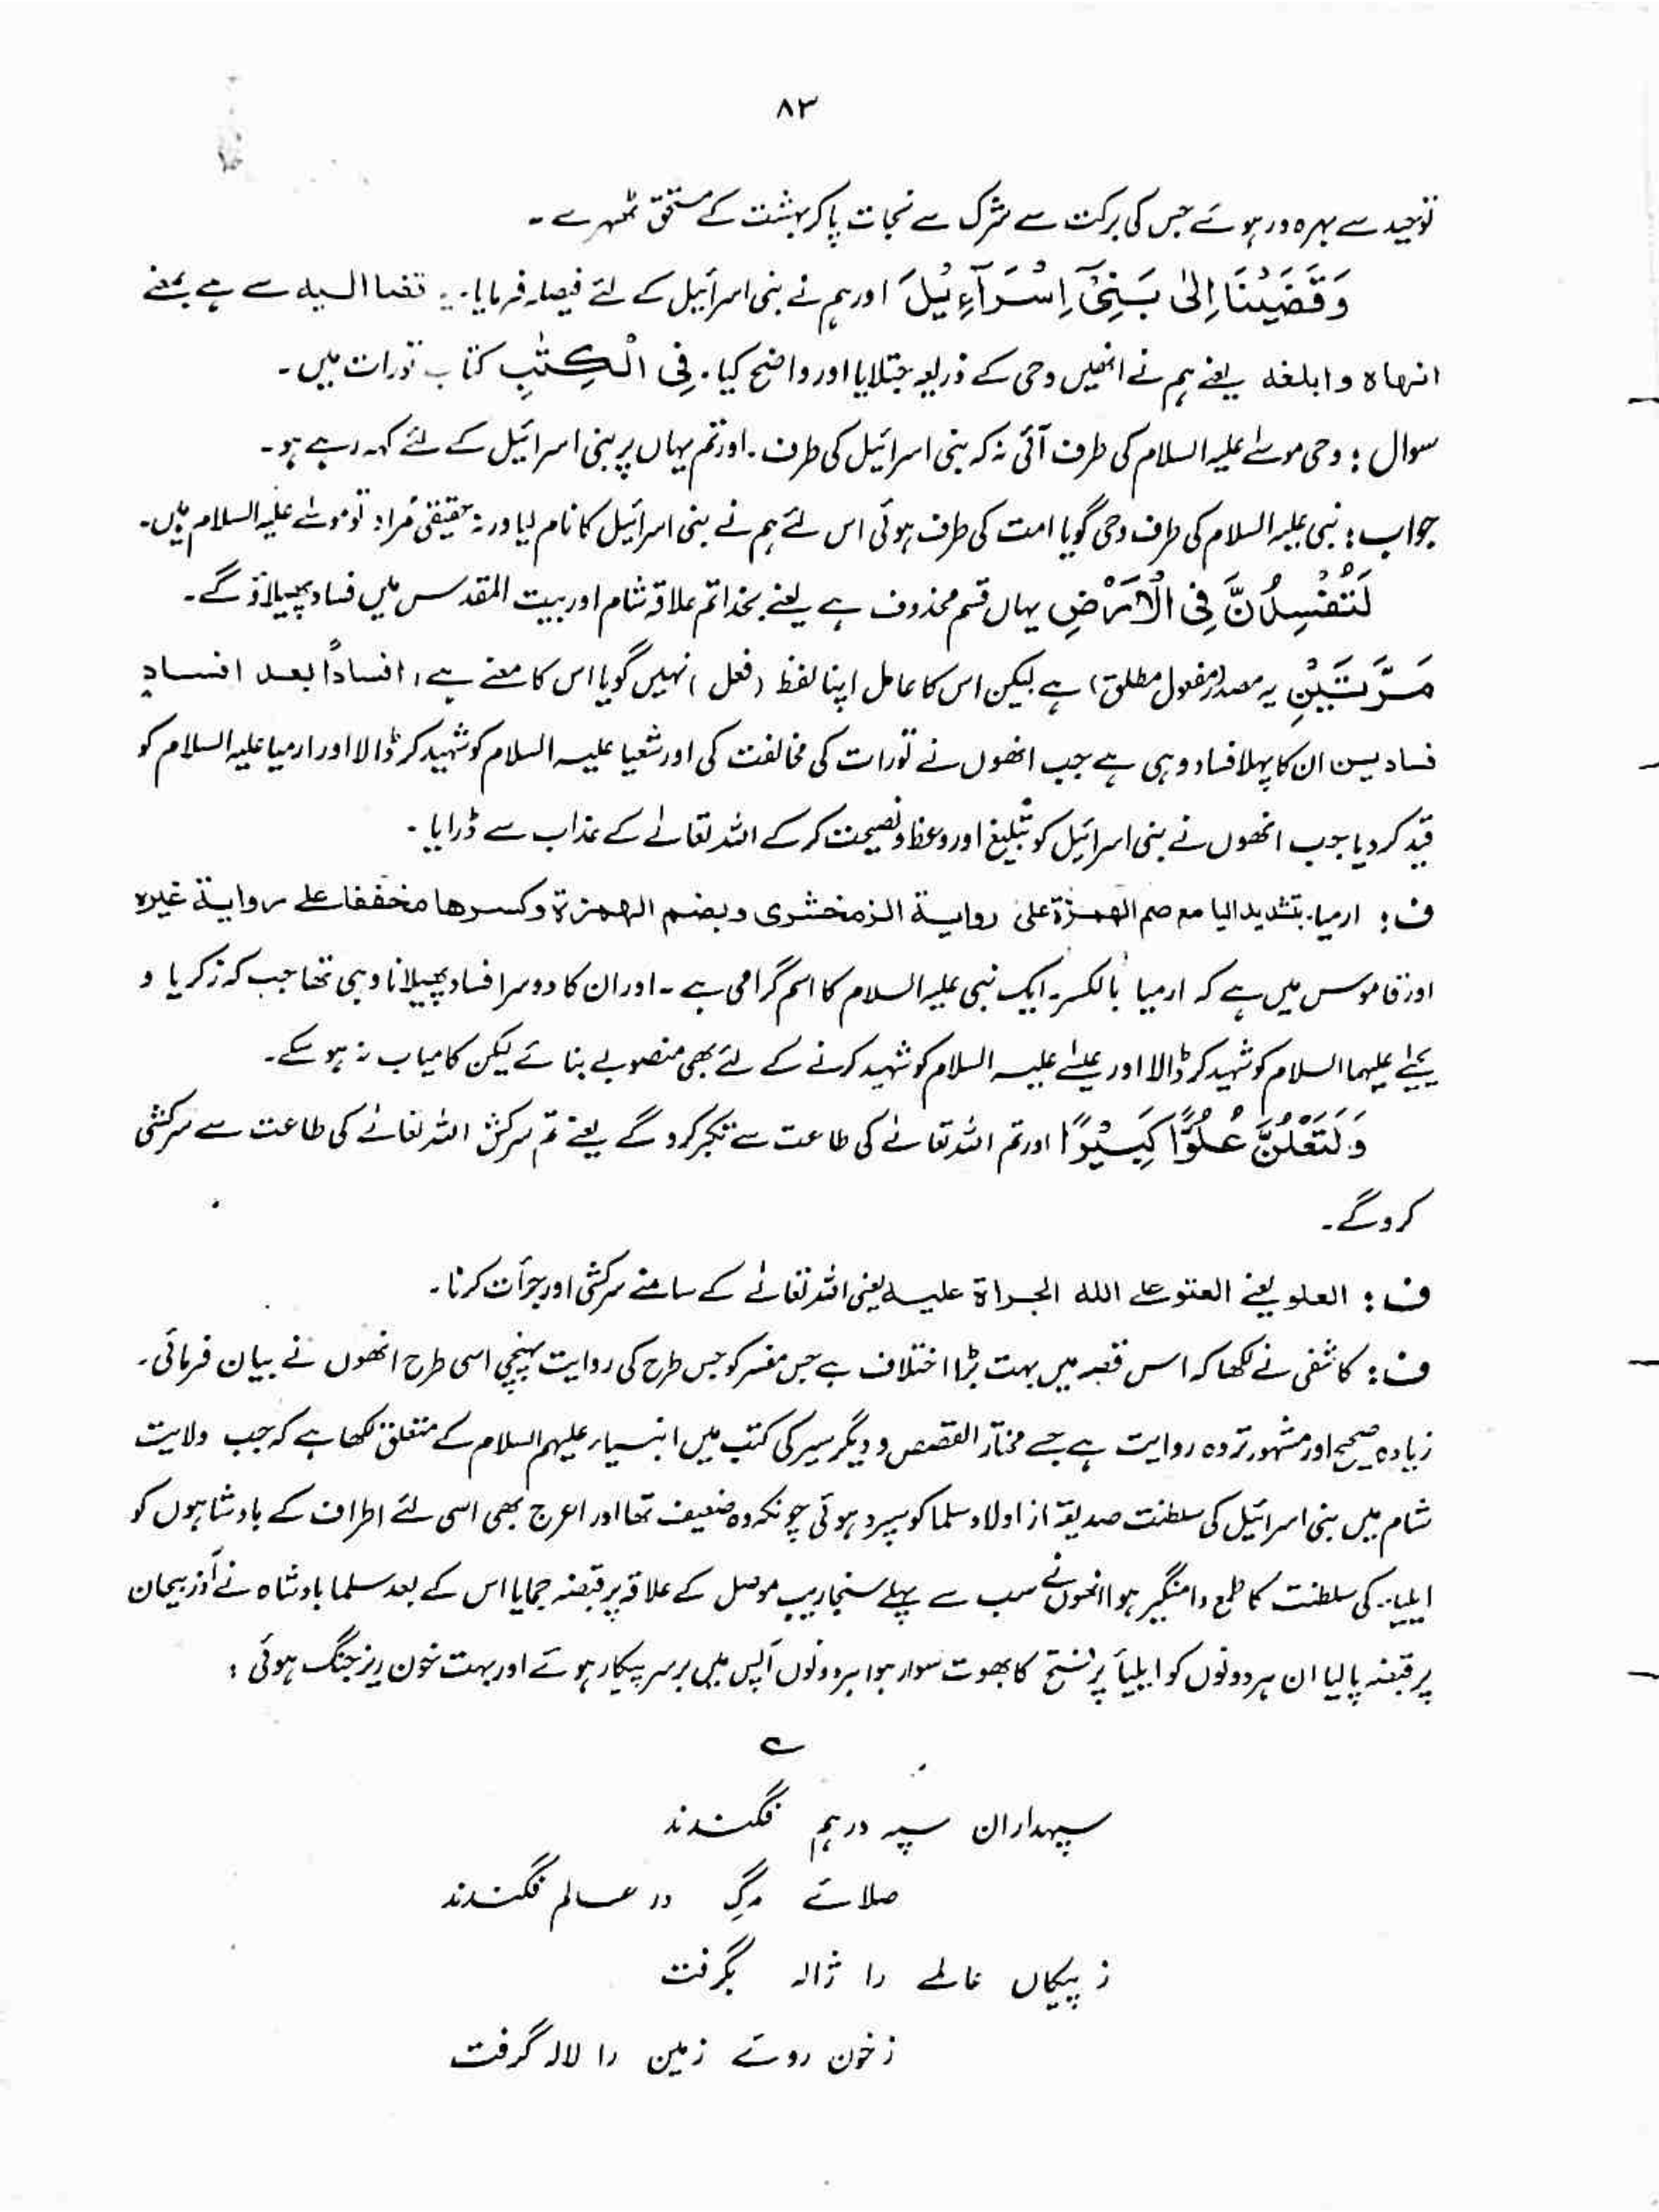 ۸۳
توحید سے بہرہ ور ہوئے جس کی برکت سے شرک سے نجات پا کر بہشت کے مستحق ٹھہرے ۔
وَقَضَيْنَا اِلٰى بَنِىْٓ اِسْرَآءِيْلَ اور ہم نے بنی اسرائیل کے لئے فیصلہ فرمایا ۔ یہ قضا الیہ سے ہے بمعنے
انہاہ وابلغہ یعنے ہم نے انھیں وحی کے ذریعہ جتلایا اور واضح کیا ۔ فِی الْکِتٰبِ کتاب تورات میں ۔
سوال : وحی موسٰے علیہ السلام کی طرف آئی نہ کہ بنی اسرائیل کی طرف ۔ اور تم یہاں پر بنی اسرائیل کے لئے کہہ رہے ہو ۔
جواب : نبی علیہ السلام کی طرف وحی گویا امت کی طرف ہوئی اس لئے ہم نے بنی اسرائیل کا نام لیا ورنہ حقیقی مُراد تو موسٰے علیہ السلام ہیں ۔
لَتُفْسِدُنَّ فِی الْاَرْضِ یہاں قسم محذوف ہے یعنے بخدا تم علاقہ شام اور بیت المقدس میں فساد پھیلاؤ گے ۔
مَرَّتَیْنِ یہ مصدر (مفعول مطلق) ہے لیکن اس کا عامل اپنا لفظ (فعل) نہیں گویا اس کا معنے ہے ، افسادًا بعد افسادٍ
فسادیین ان کا پہلا فساد وہی ہے جب انھوں نے تورات کی مخالفت کی اور شعیا علیہ السلام کو شہید کر ڈالا اور ارمیا علیہ السلام کو
قید کر دیا جب انھوں نے بنی اسرائیل کو تبلیغ اور وعظ و نصیحت کرکے اللہ تعالٰے کے عذاب سے ڈرایا ۔
ف : ارمیا ۔ بتشدید الیا مع ضم الھمزۃ علیٰ روایۃ الزمخشری وبضم الھمزۃ وکسرھا مخففا علے روایۃ غیرہ
اور قاموس میں ہے کہ ارمیا بالکسر ۔ ایک نبی علیہ السلام کا اسم گرامی ہے ۔ اور ان کا دوسرا فساد پھیلانا وہی تھا جب کہ زکریا و
یحیٰے علیہما السلام کو شہید کر ڈالا اور عیسٰے علیہ السلام کو شہید کرنے کے لئے بھی منصوبے بنائے لیکن کامیاب نہ ہو سکے ۔
وَلَتَعْلُنَّ عُلُوًّا کَبِیْرًا اور تم اللہ تعالٰے کی طاعت سے تکبر کرو گے یعنے تم سرکش اللہ تعالٰے کی طاعت سے سرکشی
کرو گے ۔
ف : العلو یعنے العتو علے اللہ الجراۃ علیہ یعنی اللہ تعالٰے کے سامنے سرکشی اور جرأت کرنا ۔
ف : کاشفی نے لکھا کہ اس قصہ میں بہت بڑا اختلاف ہے جس مفسر کو جس طرح کی روایت پہنچی اسی طرح انھوں نے بیان فرمائی ۔
زیادہ صحیح اور مشہور تر وہ روایت ہے جسے مختار القصص و دیگر سیر کی کتب میں انبیاء علیہم السلام کے متعلق لکھا ہے کہ جب ولایت
شام میں بنی اسرائیل کی سلطنت صدیقہ از اولاد سلما کو سپرد ہوئی چونکہ وہ ضعیف تھا اور اعرج بھی اسی لئے اطراف کے بادشاہوں کو
ایلیا ۔ کی سلطنت کا طمع دامنگیر ہوا انھوں نے سب سے پہلے سنجاریب موصل کے علاقہ پر قبضہ جمایا اس کے بعد سلما بادشاہ نے آذربیجان
پر قبضہ پا لیا ان ہر دونوں کو ایلیأ پر فتح کا بھوت سوار ہوا ہر دونوں آپس میں برسر پیکار ہوئے اور بہت خون ریز جنگ ہوئی :
ے
سپہداران سپہ درہم فگندند
صلائے مرگ در عالم فگندند
ز پیکاں عالمے را ژالہ بگرفت
ز خون روئے زمین را لالہ گرفت